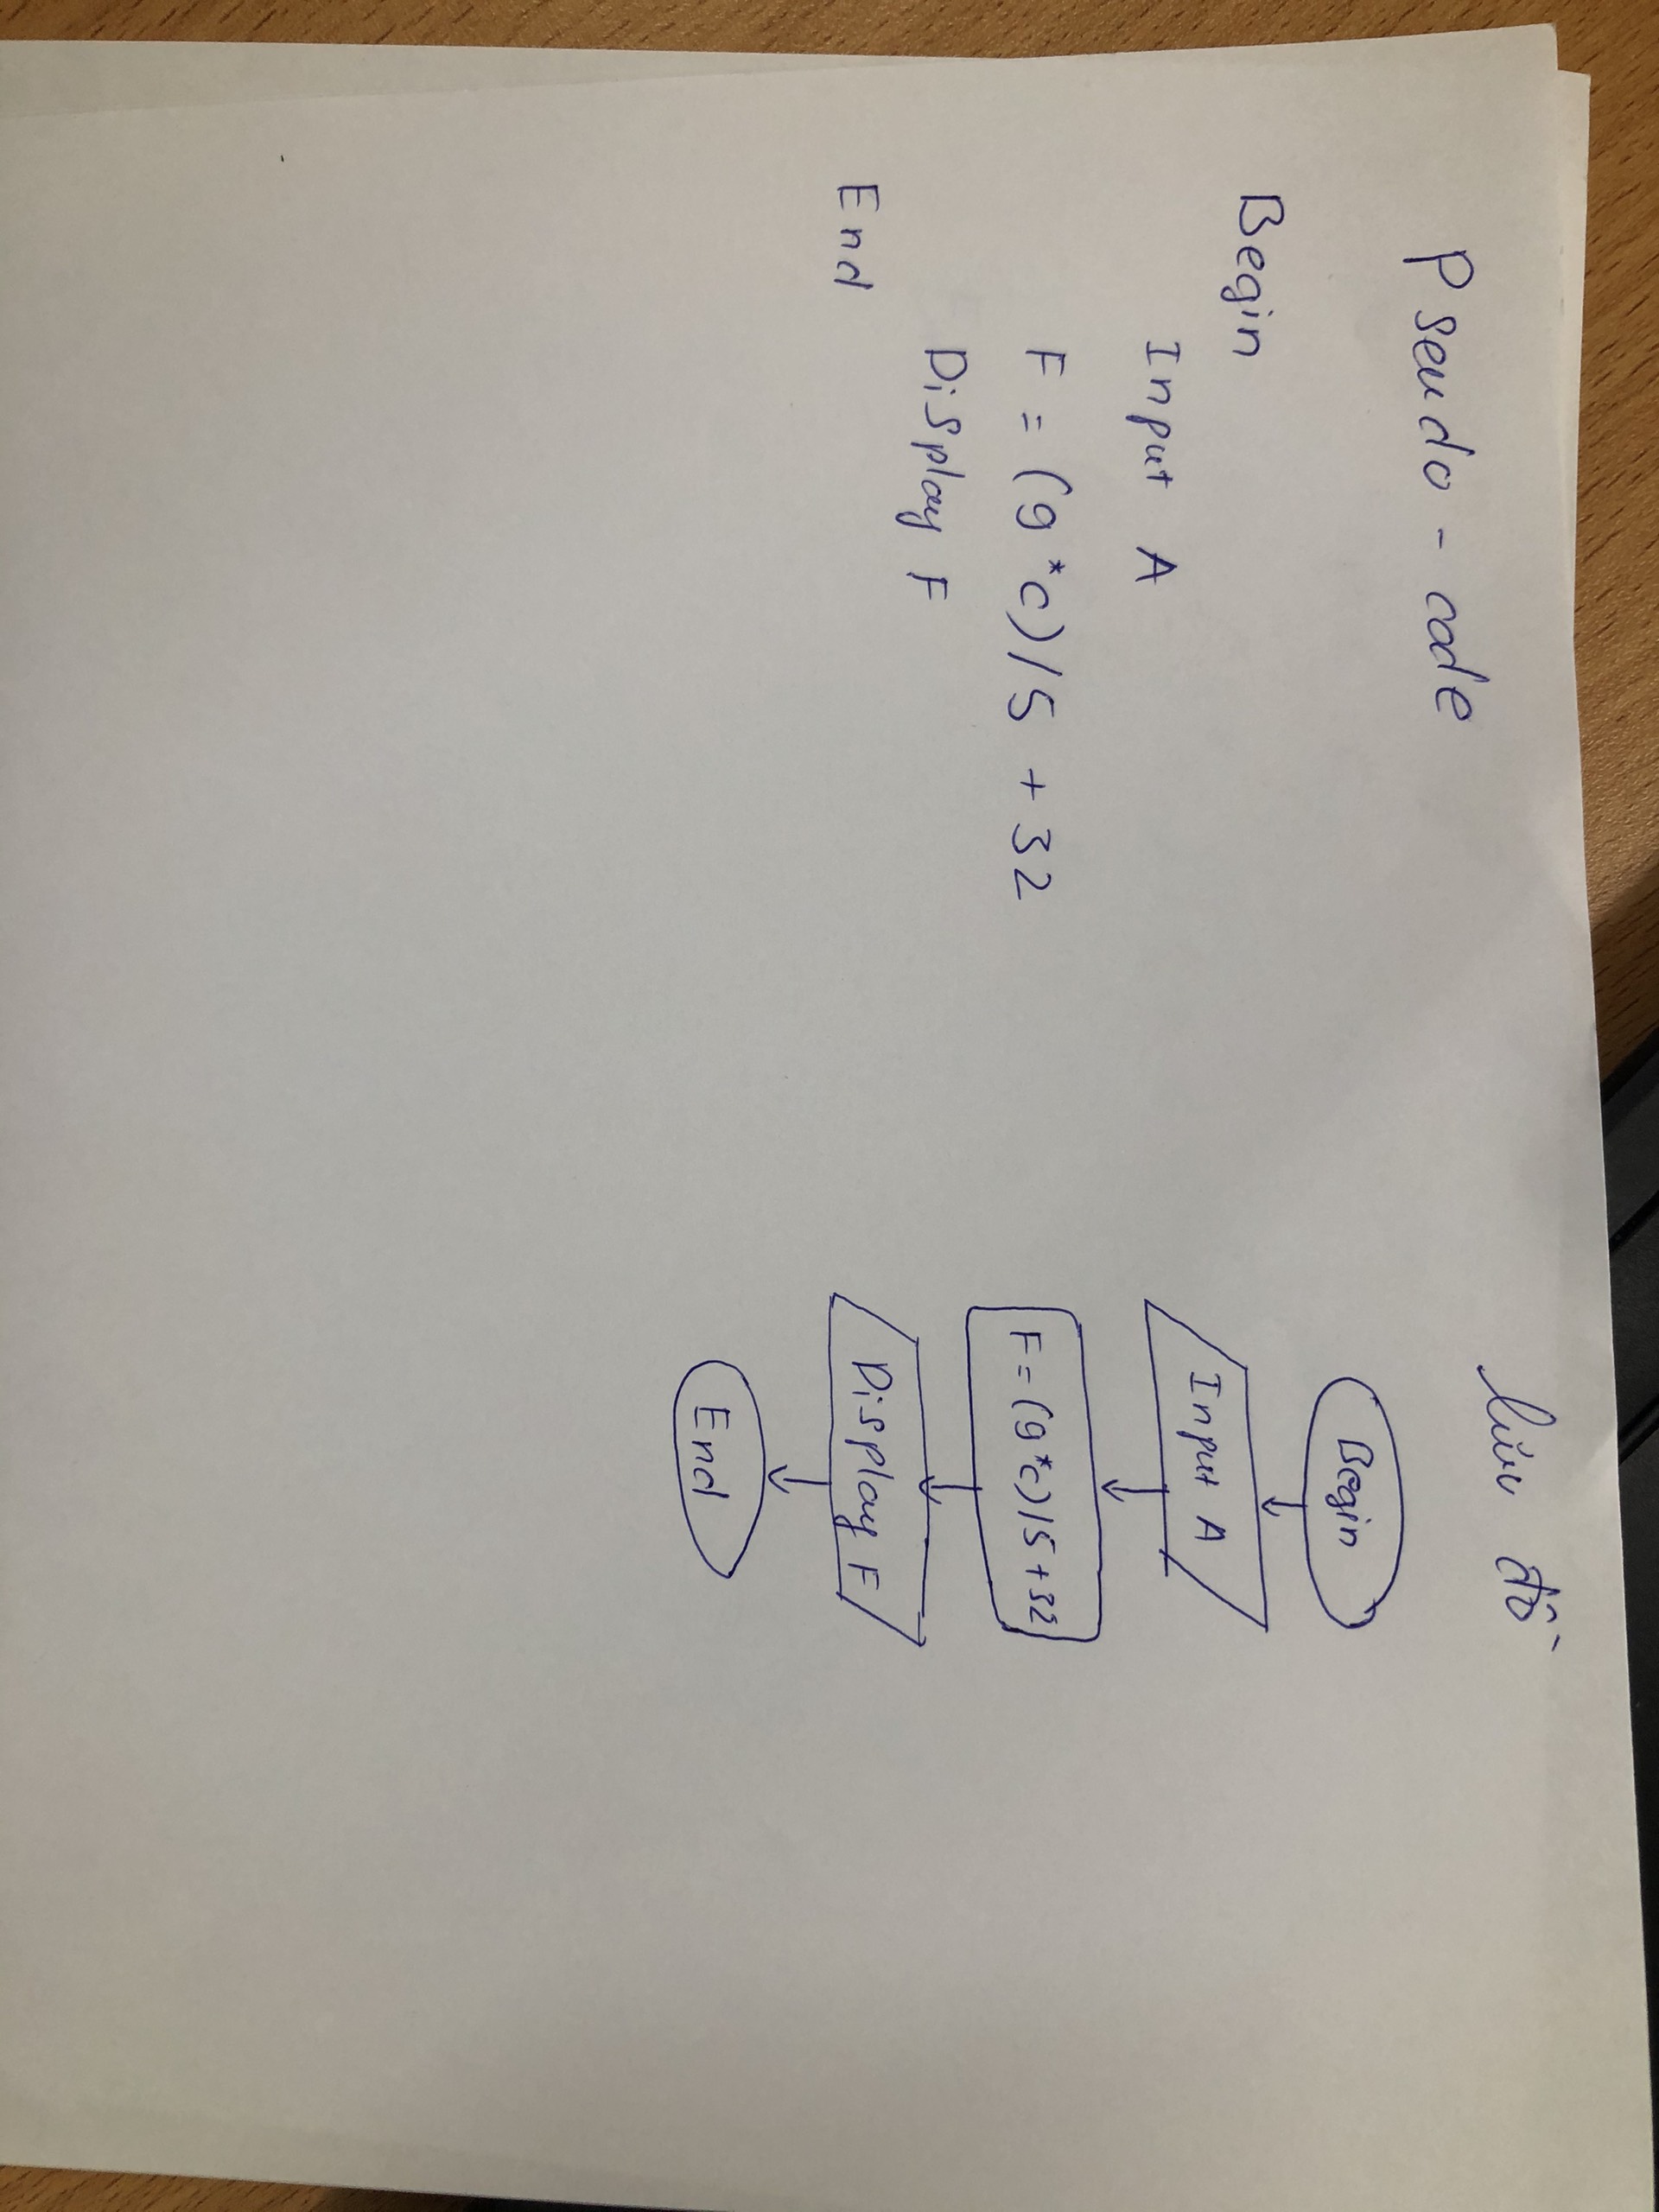 Pseudo - code
Begin
Input A
F = (9*c)/5 + 32
Display F
End
lưu đồ
Begin
Input A
F = (9*c)/5 + 32
Display F
End